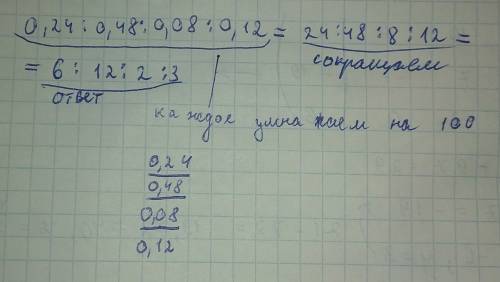 0,24 : 0,48 : 0,08 : 0,12 = 24 : 48 : 8 : 12 =
сокращаем
= 6 : 12 : 2 : 3
ответ
каждое умнажаем на 100
0,24
0,48
0,08
0,12